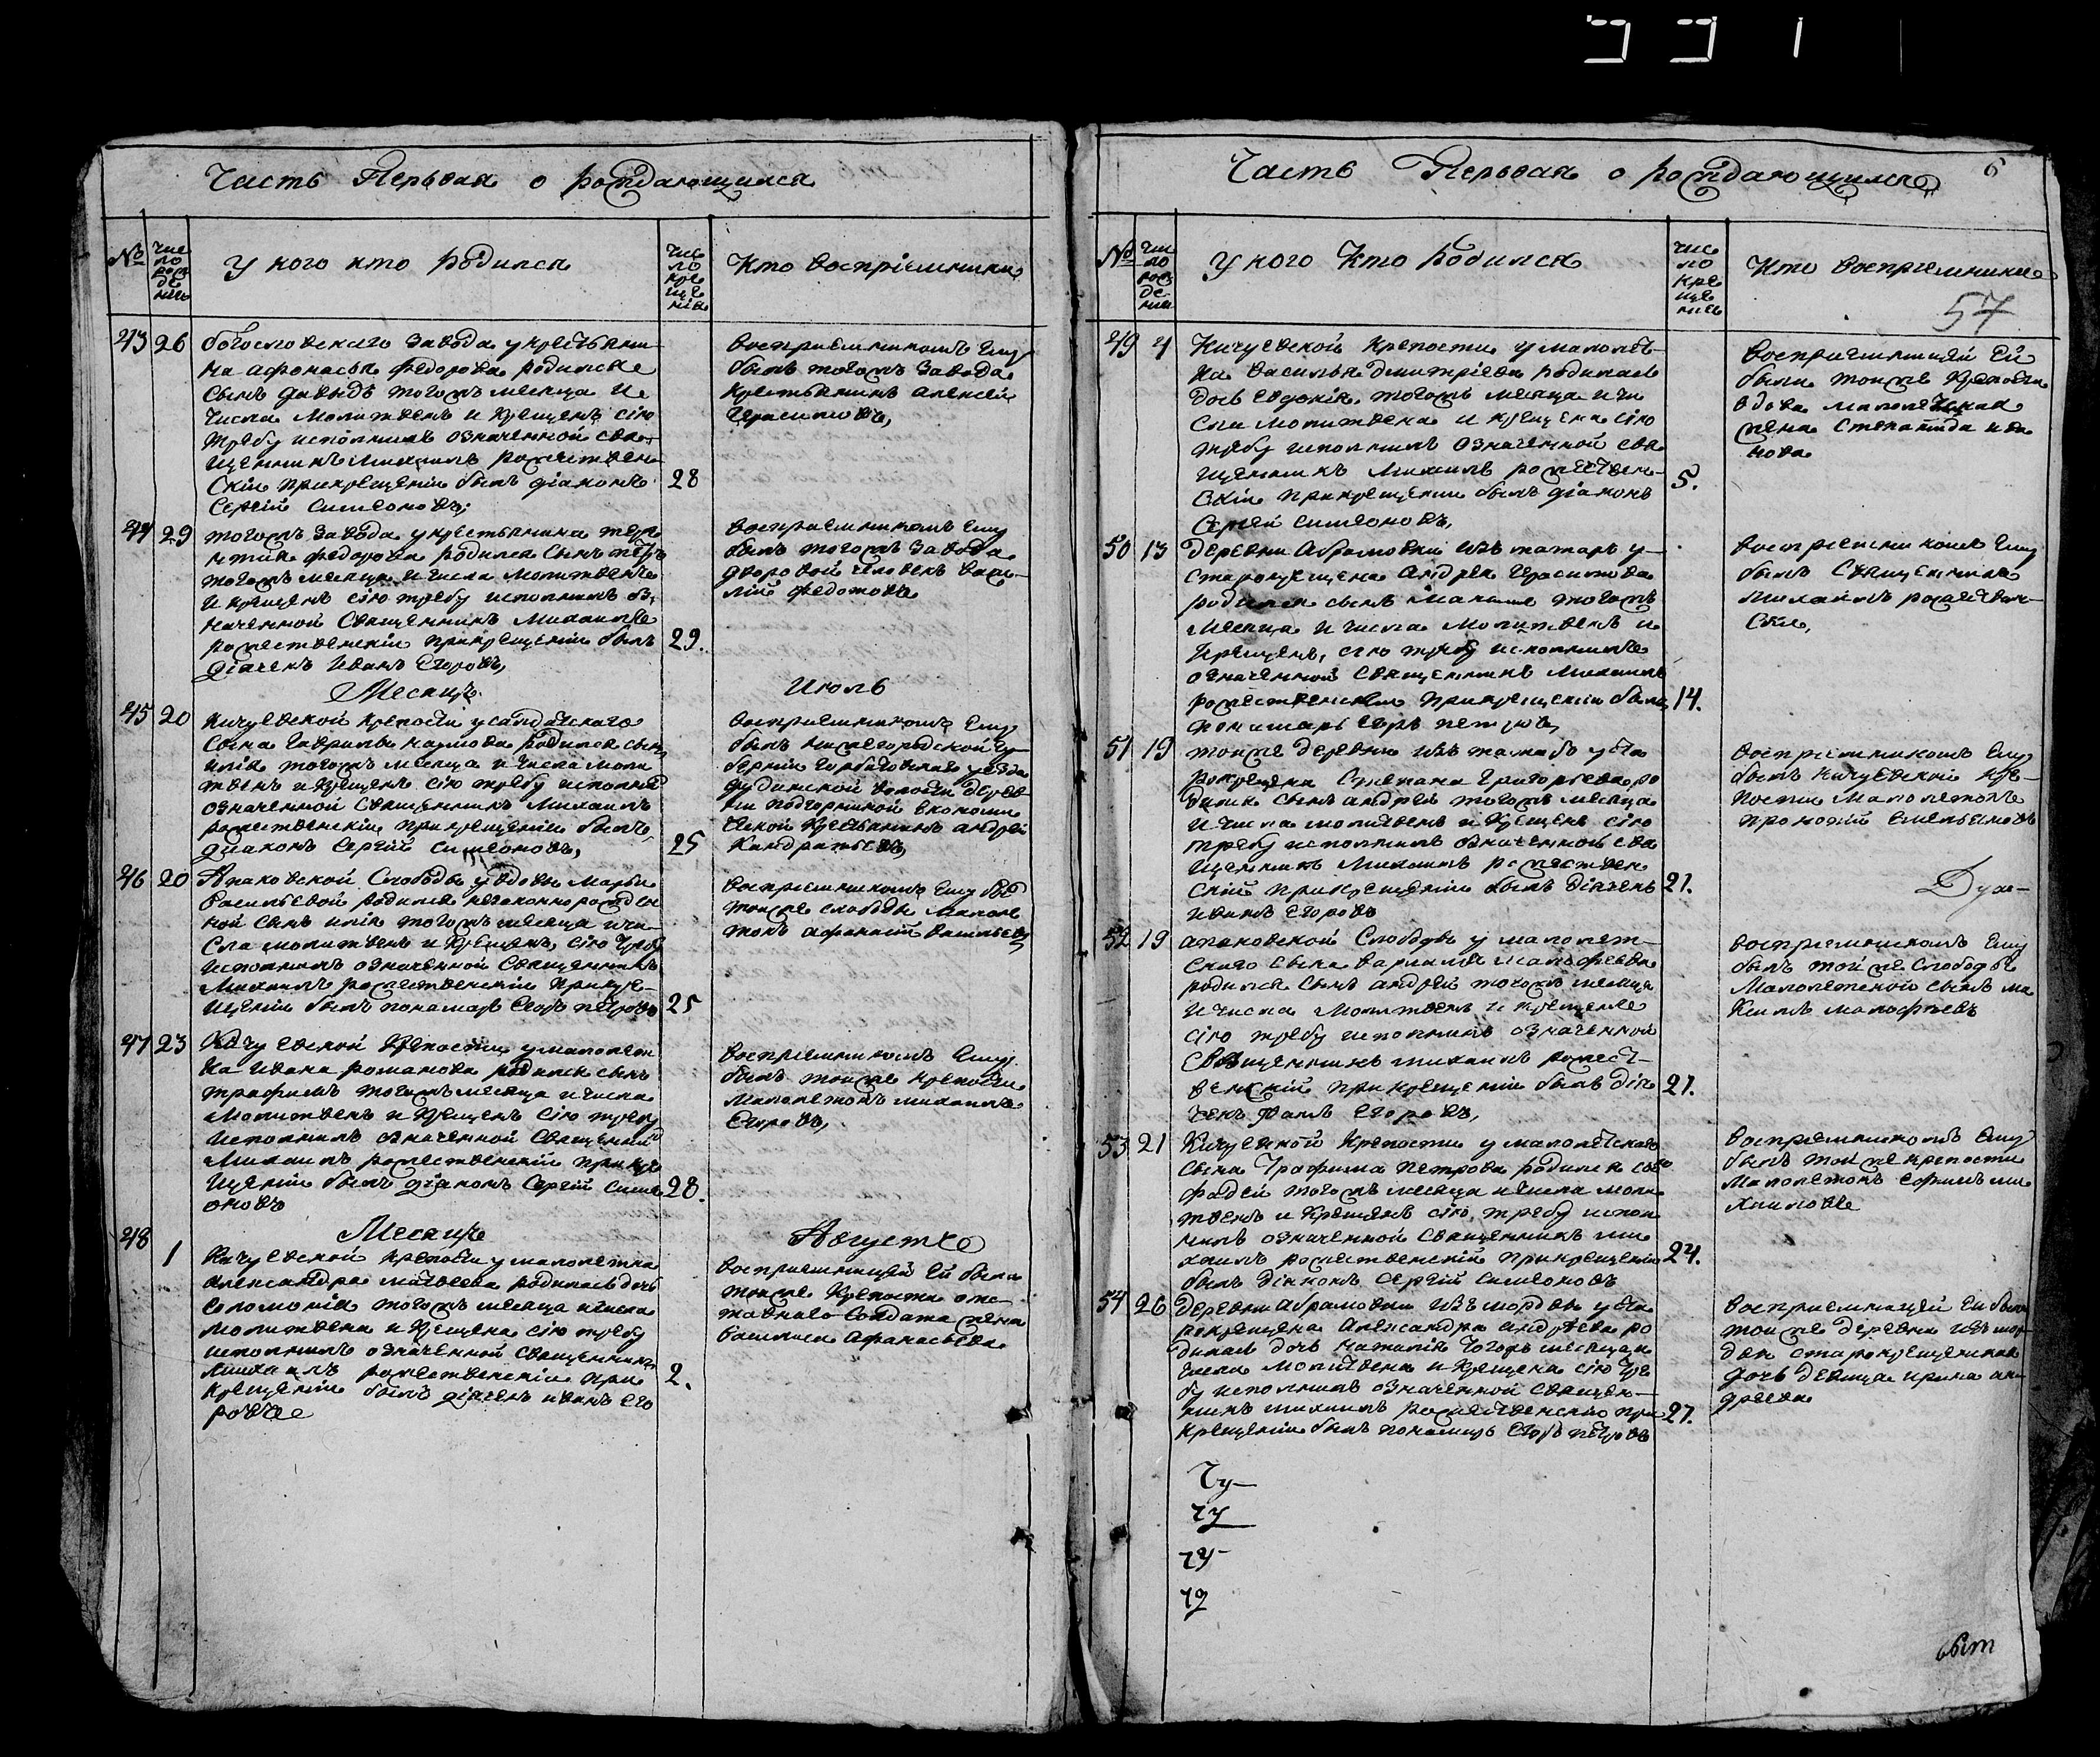 Часть Первая о рождающихся
№
чис
ло
рож
де
нія
У кого кто родился
чис
ло
кре
ще
нія
Кто воспріемники
43 26 богословскаго завода у крестьяни
на афонасья федорова родился
сынъ давыдъ тогожъ месяца и
числа молитвенъ и крещенъ сію
требу исполнилъ означенной свя
щенникъ Михаилъ рожествен
скій при крещеніи былъ діаконъ
Сергій Симеоновъ, 28
воспріемникомъ ему
былъ тогожъ завода
крестьянинъ алексей
герасимовъ,
44 29 тогожъ завода у крестьянина
федорова родился сынъ петръ
тогожъ месяца и числа молитвенъ
и крещенъ сію требу исполнилъ оз
наченной священникъ Михаилъ
рожественскій при крещеніи былъ
діачекъ Иванъ Егоровъ, 29.
воспріемникомъ ему
былъ тогожъ завода
дворовой человекъ васи
лій федотовъ
Месяцъ Июль
45 20 Кичуевской крепости у салдатскаго
сына гаврилы наумова родился сынъ
илія тогожъ месяца и числа моли
твенъ и крещенъ сію требу исполнилъ
означенной священникъ Михаилъ
рожественскій при крещеніи былъ
діаконъ Сергій Симеоновъ, 25
воспріемникомъ ему
былъ нижегородской гу
берніи горбатовскаго уезда
волости дерев
ни подгорнной економи
ческой крестьянинъ андрей
Кандратьевъ,
46 20 Апаковской Слободы у вдовы Марьи
Васильевой родился незаконнорожден
ной сынъ илія тогожъ месяца и чи
сла молитвенъ и крещенъ, сію требу
исполнилъ означенной священникъ
Михаилъ рожественскій при кре
щеніи былъ понамарь Егоръ петровъ 25
воспріемникомъ ему былъ
тояже слободы малоле
токъ афанасій васильевъ
47 23 Кичуевской крепости у малолет
ка ивана романова родился сынъ
трофимъ тогожъ месяца и числа
молитвенъ и крещенъ сію требу
исполнилъ означенной священникъ
Михаилъ рожественскій при кре
щеніи былъ діаконъ Сергій Симе
оновъ 28.
воспріемникомъ ему
былъ тояже крепости
малолетокъ михаилъ
Егоровъ,
Месяцъ Августъ
48 1 Кичуевской крепости у малолетка
александра матвеева родилась дочь
Соломонія тогожъ месяца и числа
молитвена и крещена сію требу
исполнилъ означенной священникъ
Михаилъ рожественскій при
крещеніи былъ діачекъ иванъ его
ровъ 2.
воспріемницей ей была
тояже крепости отс
тавнаго солдата жена
афанасьева
Часть Первая о рождающихся
6
№
чис
ло
рож
де
нія
У кого кто родился
чис
ло
кре
ще
нія
Кто воспріемники
57
49 4 Кичуевской крепости у малолет
ка василья дмитріева родилась
дочь евдокія, тогожъ месяца и чи
сла молитвена и крещена сію
требу исполнилъ означенной свя
щенникъ Михаилъ рожествен
скій при крещеніи былъ діаконъ
Сергей Симеоновъ, 5.
воспріемницей ей
была тояже крепости
вдова малолетская
жена степанида ива
нова
50 13 деревни Абрамовки изъ татаръ у
старокрещена Андрея герасимова
родился сынъ тогожъ
месяца и числа молитвенъ и
крещенъ, сію требу исполнилъ
означенной священникъ Михаилъ
рожественскій при крещеніи былъ
понамарь егоръ петровъ, 14.
воспріемникомъ ему
былъ священникъ
Михаилъ рожествен
скій,
51 19 тояже деревни изъ у ста
рокрещена Степана григорьева ро
дился сынъ андрей тогожъ месяца
и числа молитвенъ и крещенъ сію
требу исполнилъ означенной свя
щенникъ Михаилъ рожествен
скій при крещеніи былъ діачекъ
иванъ егоровъ 21.
воспріемникомъ ему
былъ кичуевской кре
пости малолетокъ
прокофій емельяновъ
52 19 апаковской слободы у малолет
скаго сына варлама малафеева
родился сынъ андрей тогожъ месяца
и числа молитвенъ и крещенъ
сію требу исполнилъ означенной
священникъ михаилъ рожест
венскій при крещеніи былъ діа
чекъ иванъ егоровъ, 21.
воспріемникомъ ему
былъ тойже слободы
малолетской сынъ ма
ксимъ малофеевъ
53 21 Кичуевской крепости у малолетскаго
сына трофима петрова родился сынъ
фадей тогожъ месяца и числа моли
твенъ и крещенъ сію требу испол
нилъ означенной священникъ ми
хаилъ рожественскій при крещеніи
былъ діаконъ Сергій Симеоновъ 24.
воспріемникомъ ему
былъ тойже крепости
малолетокъ ефимъ ми
хайловъ
54 26 деревни абрамовки изъ мордвы у ста
рокрещена Александра андреева ро
дилась дочь наталія тогожъ месяца и
числа молитвена и крещена сію тре
бу исполнилъ означенной священ
никъ михаилъ рожественскій при
крещеніи былъ понамарь егоръ петровъ 27.
воспріемницей ей была
тойже деревни изъ мор
двы старокрещенская
дочь девица ирина ан
дреева